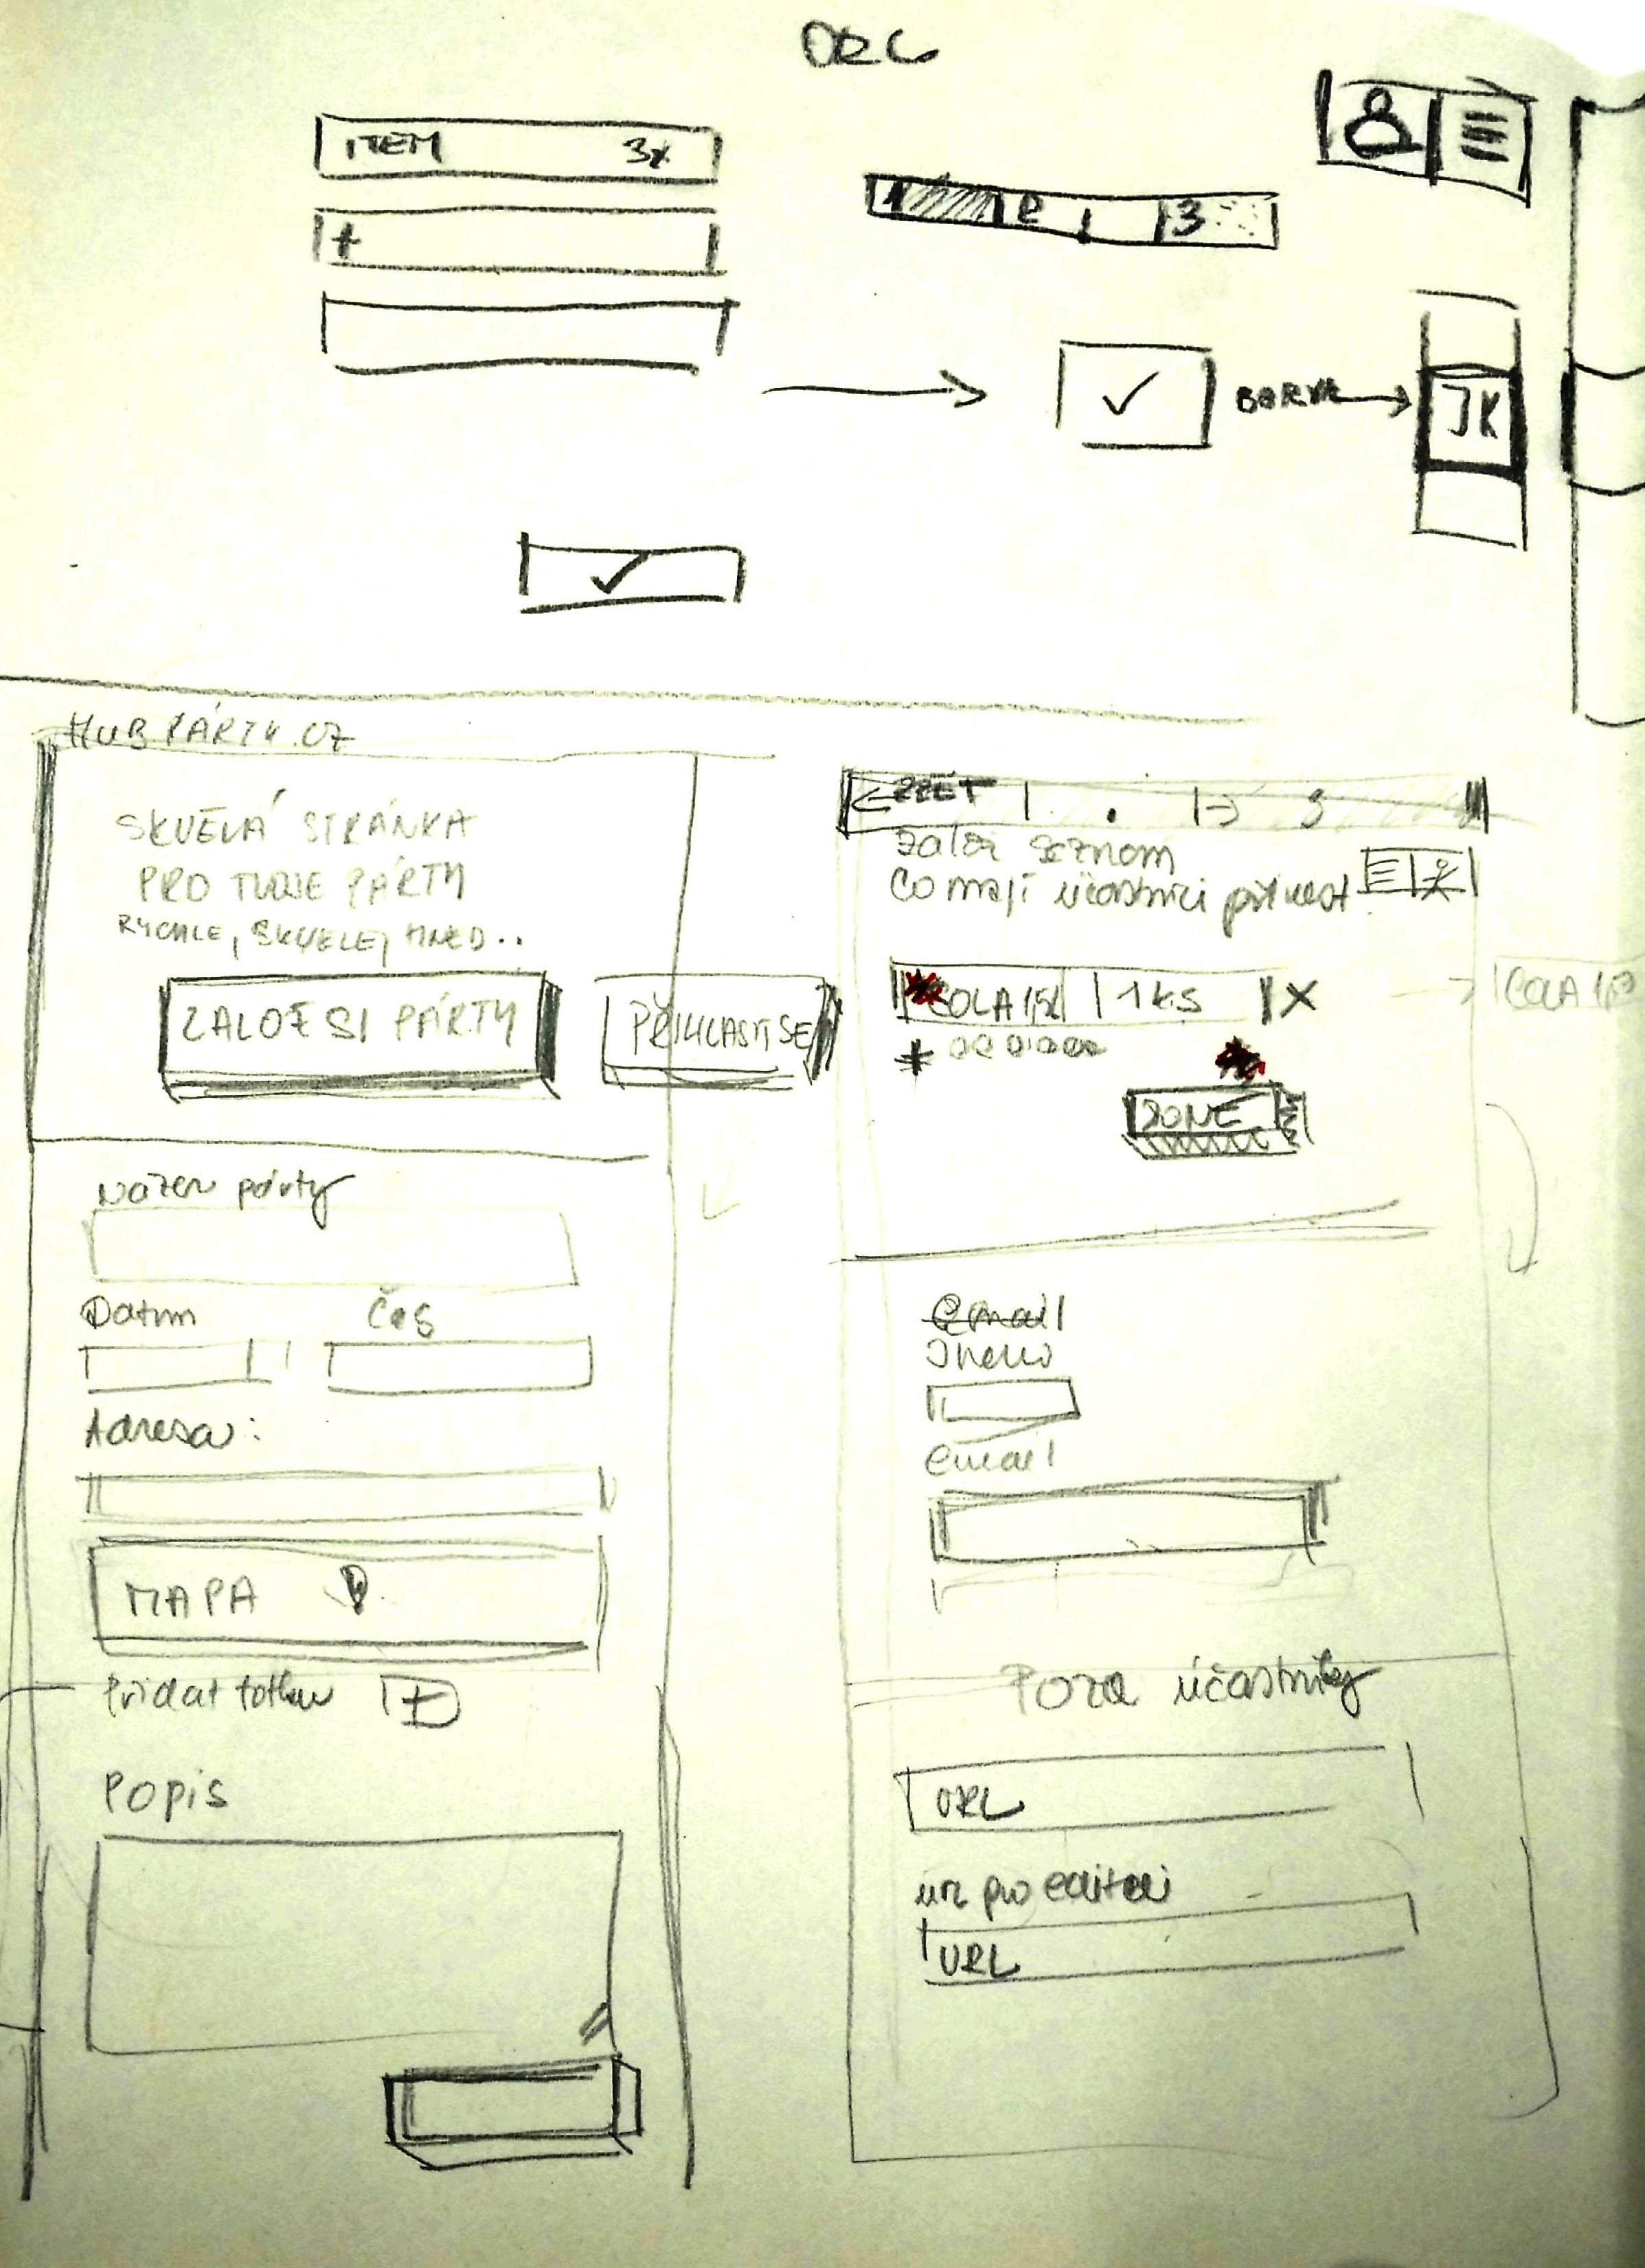 ORG
ITEM 3x
+
2 3
BARVA
JK
HUBPÁRTY.CZ
SKVELÁ STRÁNKA
PRO TVOJE PÁRTY
RYCHLE, SKVELE, HNED..
ZALOŽ SI PÁRTY
PŘIHLASIT SE
Název párty
Datum Čas
Adresa:
MAPA
Pridat fotku +
Popis
ZPĚT 3
Založ seznam
Co mají účastníci přinest
COLA 1,5l 1 KS X
COLA 1,5l
DONE
Email
Jméno
email
Pozva účastníky
URL
url pro editaci
URL